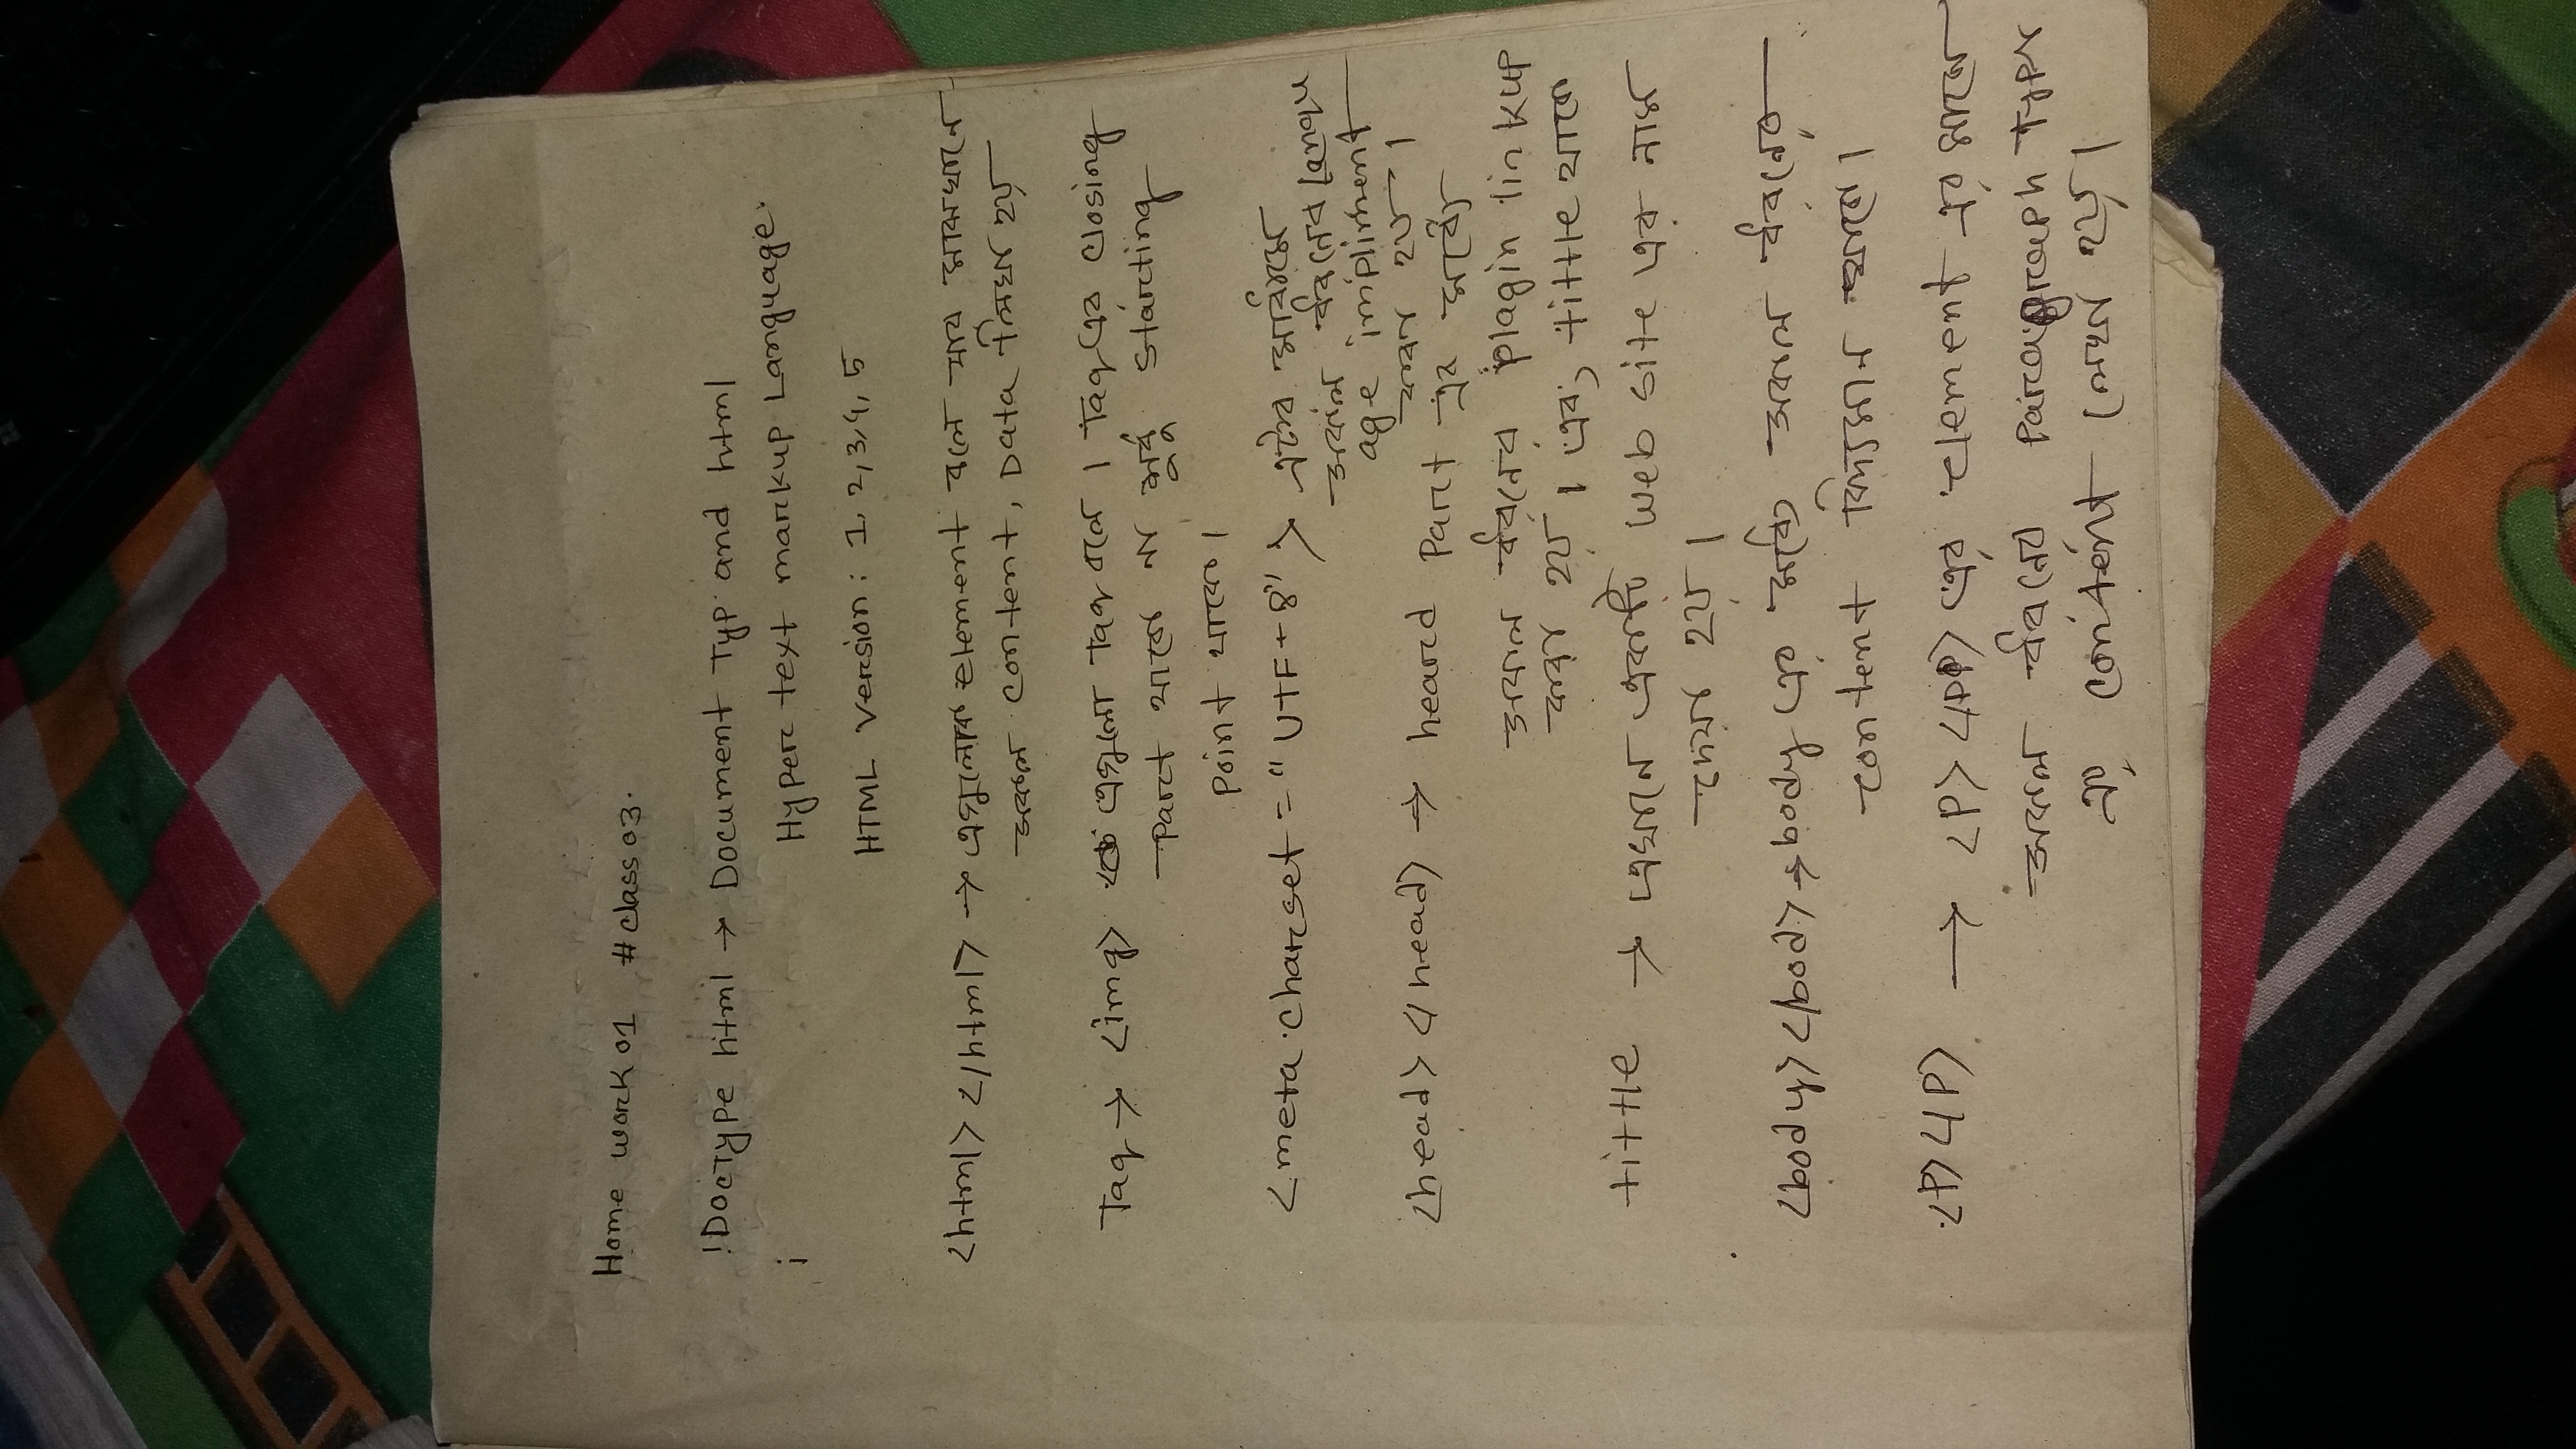 Home work 01 #class 03.
!DocType html → Document Typ and html
i
Hyper text markup Language.
HTML Version: 1, 2, 3, 4, 5
<html> </html> → এগুলোক element বলে যার মাঝখানে
সকল content, Data লিখা হয়
Tag → <img> এগুলো Tag বলে । Tag এর closing
Part থাকে না শুধু starting
Point থাকে ।
<meta charset = "UTF + 8" > এটার মাধ্যমে
সকল ধরনের Langu
age impliment
করা হয় ।
<head> </head> → heard Part এর মধ্যে
সকল ধরনের plagin linkup
করা হয় । এবং tittle থাকে
tittle → এখানে একটি web site এর নাম
দেয়া হয় ।
<body> </bod> → body এর মধ্যে সকল ধরনের
content বিদ্যমান থাকে ।
<P> </P> → <P> </PP> এর element এর মানে
সকল ধরনের Paragraph Type
এর content লেখা হয় ।